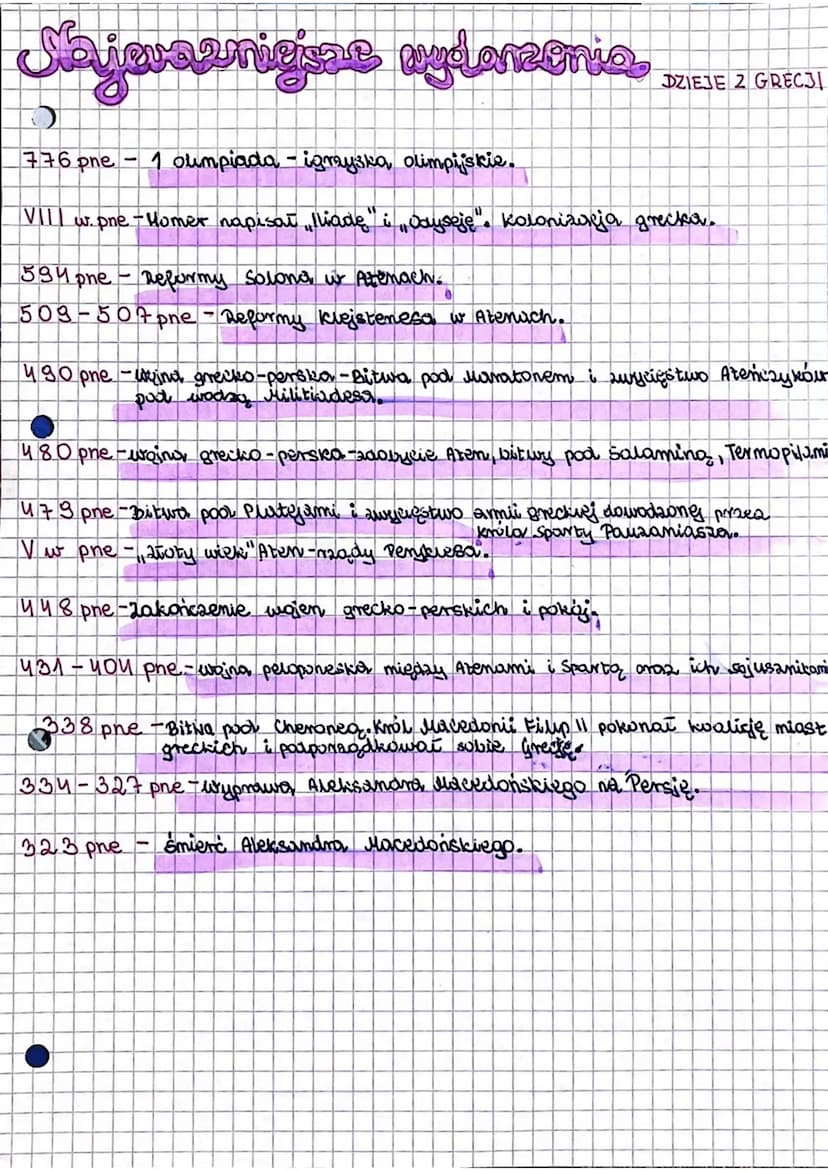 Najważniejsze wydarzenia
DZIEJE Z GRECJI
776 pne - 1 olimpiada - igrzyska olimpijskie.
VIII w. pne - Homer napisał „Iliadę" i „Odyseję". Kolonizacja grecka.
594 pne - Reformy Solona w Atenach.
509-507 pne - Reformy Klejstenesa w Atenach.
490 pne - wojna grecko-perska - Bitwa pod Maratonem i zwycięstwo Ateńczyków
pod wodzą Militiadesa.
480 pne - wojna grecko-perska - zdobycie Aten, bitwy pod Salaminą, Termopilami
479 pne - Bitwa pod Platejami i zwycięstwo armii greckiej dowodzonej przez
króla Sparty Pauzaniasza.
V w pne - „złoty wiek" Aten - rządy Peryklesa.
448 pne - zakończenie wojen grecko-perskich i pokój.
431-404 pne. - wojna peloponeska między Atenami i Spartą oraz ich sojusznikami
338 pne - Bitwa pod Cheroneą. Król Macedonii Filip II pokonał koalicję miast
greckich i podporządkował sobie Grecję.
334-327 pne - wyprawa Aleksandra Macedońskiego na Persję.
323 pne - śmierć Aleksandra Macedońskiego.